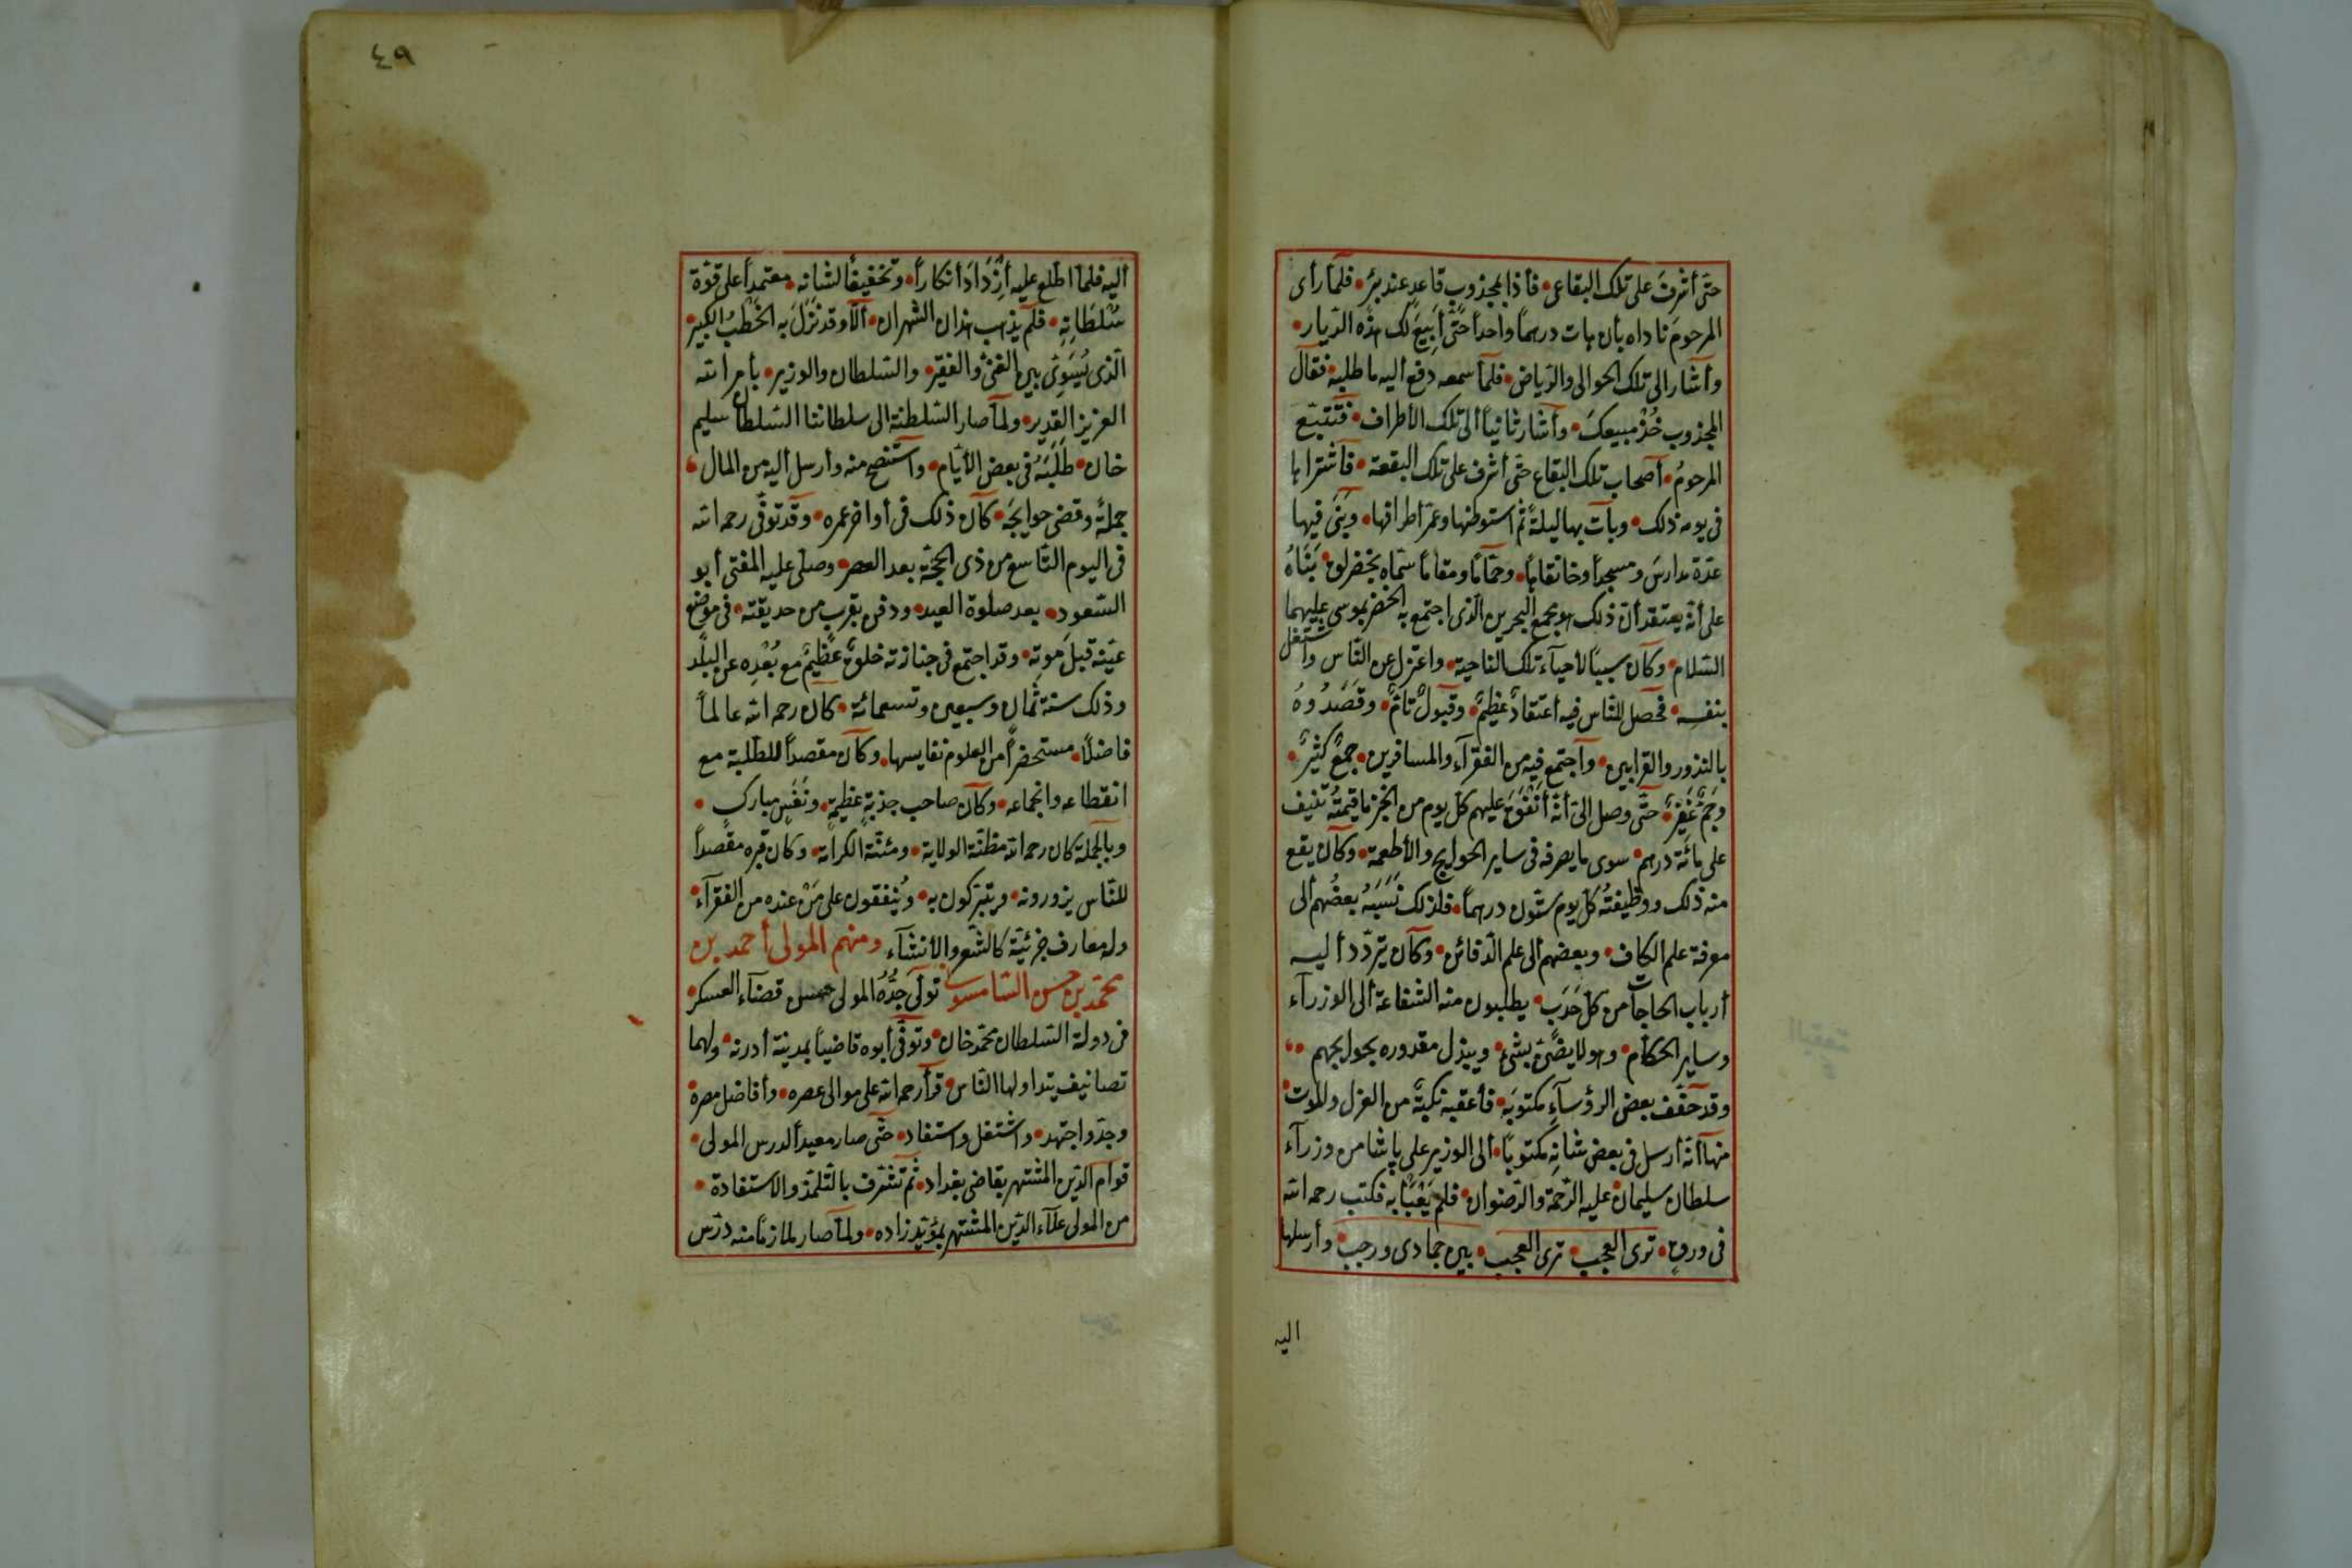 حتى أشرف على تلك البقاع فأذا بمجذوب قاعد عند بئر فلما رأى
المرحوم ناداه بأن هات درهماً واحداً حتى أبيع لك هذه الديار
وأشار الى تلك الحوالى والرياض فلما سمعه دفع أليه ما طلبه فقال
المجذوب خذ مبيعك وأشار ثانياً ألى تلك الأطراف فتتبع
المرحوم أصحاب تلك البقاع حتى أشرف على تلك البقعة فأشتراها
فى يومه ذلك وبات بها ليلةً ثم استوطنها وعمر اطرافها وبنى فيها
عدة مدارس ومسجداً وخانقاهاً وحماماً ومقاماً سماه بخضرلق بناه
على أنه يعتقد أن ذلك هو مجمع البحرين الذى اجتمع به الخضر بموسى عليهما
السلام وكان سبباً لأحياء تلك الناحية واعتزل عن الناس واشتغل
بنفسه فحصل للناس فيه أعتقاد عظيم وقبول تام وقصدوه
بالنذور والقرابين وأجتمع فيه من الفقراء والمسافرين جمع كثير
وجم غفير حتى وصل إلى أنه أنفق عليهم كل يوم من الخبز ما قيمته تنيف
على مائة درهم سوى ما يصرفه فى ساير الحوايج والأطعمة وكان يقع
منه ذلك ووظيفته كل يوم ستون درهماً فلذلك نسبه بعضهم ألى
معرفة علم الكاف وبعضهم ألى علم الدفائن وكان يتردد أليه
أرباب الحاجات من كل حدب يطلبون منه الشفاعة ألى الوزراء
وساير الحكام وهو لا يضن بشئ ويبذل مقدوره بحوايجهم
وقد حقف بعض الرؤساء مكتوبه فأعقبه نكبةً من العزل والموت
منها أنه أرسل فى بعض شانه مكتوباً ألى الوزير على پاشا من وزراء
سلطان سليمان عليه الرحمة والرضوان فلم يعبأ به فكتب رحمه الله
فى ورق ترى العجب ترى العجب بين جمادى ورجب وأرسلها
اليه
٤٩
أليه فلما اطلع عليه أزداد أنكاراً وتخفيفاً لشانه معتمداً على قوة
سلطانه فلم يذهب هذان الشهران ألا وقد نزل به الخطب الكبير
الذى يسوى بين الغنى والفقير والسلطان والوزير بأمر الله
العزيز القدير ولما صار السلطنة الى سلطاننا السلطان سليم
خان طلبه فى بعض الأيام واستنصح منه وأرسل أليه من المال
جملةً وقضى حوايجه كان ذلك فى أواخر عمره وقد توفى رحمه الله
فى اليوم التاسع من ذى الحجة بعد العصر وصلى عليه المفتى أبو
السعود بعد صلوة العيد ودفن بقرب من حديقته فى موضع
عينه قبل موته وقد اجتمع فى جنازته خلق عظيم مع بعده عن البلد
وذلك سنة ثمان وسبعين وتسعمائة كان رحمه الله عالماً
فاضلاً مستحضراً من العلوم نفايسها وكان مقصداً للطلبة مع
انقطاعه وانجماعه وكان صاحب جذبة عظيمة ونفس مبارك
وبالجملة كان رحمه الله مظنة الولاية ومئنة الكرامة وكان قبره مقصداً
للناس يزورونه ويتبركون به وينفقون على من عنده من الفقراء
وله معارف جزئية كالشعر والأنشاء ومنهم المولى أحمد بن
محمد بن حسن السامسونى تولى جده المولى حسن قضاء العسكر
فى دولة السلطان محمد خان وتوفى أبوه قاضياً بمدينة أدرنه ولهما
تصانيف يتداولها الناس قرأ رحمه الله على موالى عصره وأفاضل مصره
وجد واجتهد واشتغل واستفاد حتى صار معيداً لدرس المولى
قوام الدين المشتهر بقاضى بغداد ثم تشرف بالتلمذ والاستفادة
من المولى علاء الدين المشتهر بمؤيد زاده ولما صار ملازماً منه درس